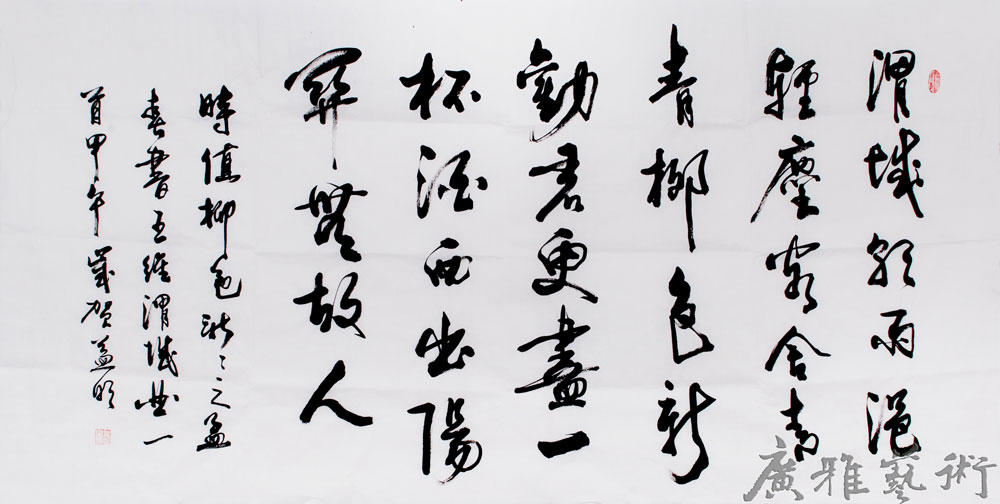 渭城朝雨浥
輕塵客舍青
青柳色新
勸君更盡一
杯酒西出陽
關無故人
時值柳色新〻之孟
春書王維渭城曲一
首甲午歲賀益明
廣雅藝術